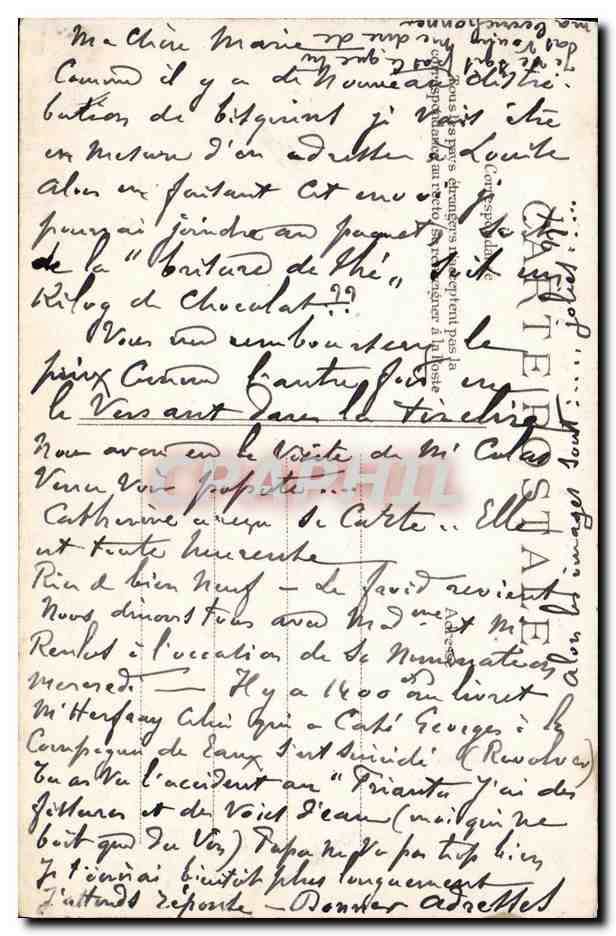 Ma chère Marie
Comme il y a de Nouveau distri-
bution de bisquint je vais être
en mesure d'en adresser à
alors en faisant cet envoi je
pourrai joindre au paquet
de la " de thé " Soit un
Kilog de Chocolat ??
Vous me rembourserez le
prix comme l'autre fois en
le Versant dans la tirelire
Nous avons eu la Visite de Mr Colas
Venu Voir popote ....
Catherine a reçu Sa Carte .. Elle
est toute heureuse
Rien de bien Neuf - Le froid revient
Nous dinons tous avec Madame et Mr
à l'occasion de Sa Nomination
mercredi — Il y a 1400 au livret
Mr celui qui a Café Georges à la
Compagnie de Eaux s'est Suicidé (Revolver)
Tu as Vu l'accident au "Trianta J'ai des
fissures et des Voies d'eau (moi qui ne
boit que du Vin) Papa ne Va pas trop bien
Je t'écrirai bientôt plus longuement
J'attends réponse - Bonnes adresses
Alors les images sont : .... jolies : ....
CARTE POSTALE
Correspondance
Tous les pays étrangers n'acceptent pas la
correspondance au recto, se renseigner à la Poste
Adresse
CRAPHIL